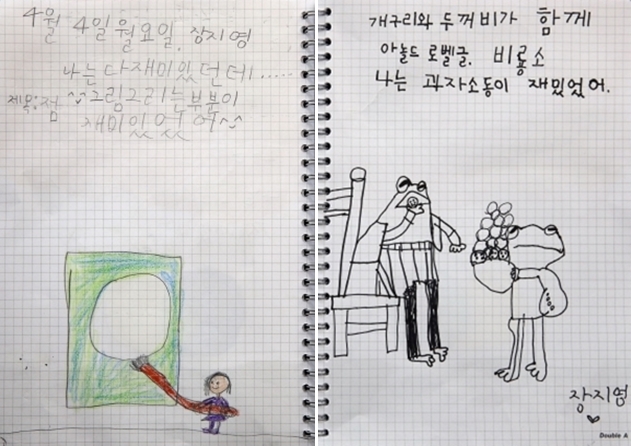 4월 4일 월요일. 장지영
나는 다 재미있던데.....
제목:점
그림그리는부분이
재미있었어
개구리와 두꺼비가 함께
아놀드 로벨글. 비룡소
나는 과자소동이 재밌었어.
장지영
Double A